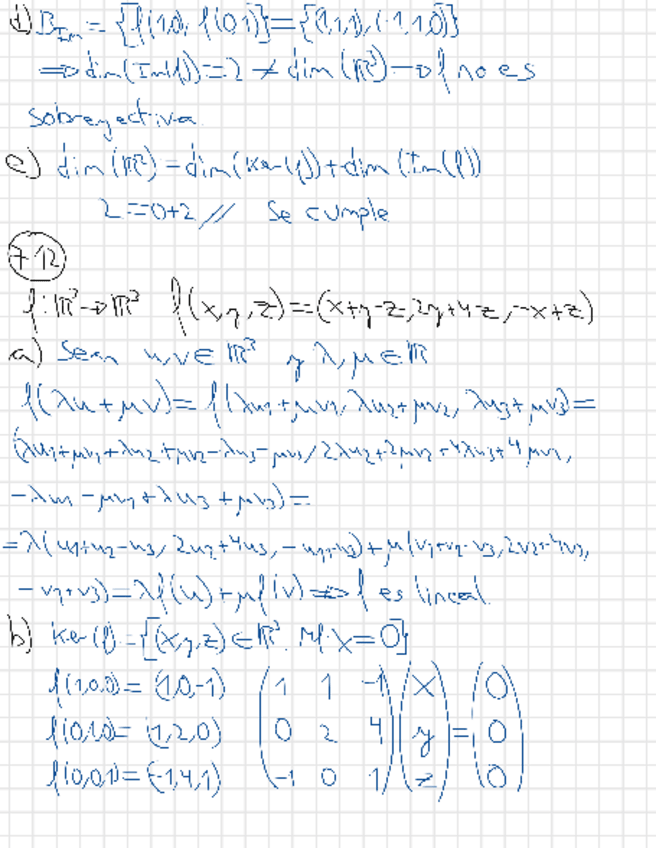 d) B_Im = {f(1,0), f(0,1)} = {(1,1,1), (-1,1,0)}
⇒ dim(Im(f)) = 2 ≠ dim(ℝ³) → f no es
sobreyectiva.
e) dim(ℝ²) = dim(Ker(f)) + dim(Im(f))
2 = 0+2 // Se cumple
7.12
f: ℝ³ → ℝ³ f(x,y,z) = (x+y-z, 2y+4z, -x+z)
a) Sean u,v ∈ ℝ³ y λ,μ ∈ ℝ
f(λu+μv) = f(λu₁+μv₁, λu₂+μv₂, λu₃+μv₃) =
(λu₁+μv₁+λu₂+μv₂-λu₃-μv₃, 2λu₂+2μv₂+4λu₃+4μv₃,
-λu₁-μv₁+λu₃+μv₃) =
= λ(u₁+u₂-u₃, 2u₂+4u₃, -u₁+u₃) + μ(v₁+v₂-v₃, 2v₂+4v₃,
-v₁+v₃) = λf(u)+μf(v) ⇒ f es lineal.
b) Ker(f) = {(x,y,z) ∈ ℝ³. Mf·X = 0}
f(1,0,0) = (1,0,-1) ( 1 1 -1 ) ( x ) ( 0 )
f(0,1,0) = (1,2,0) ( 0 2 4 ) ( y ) = ( 0 )
f(0,0,1) = (-1,4,1) ( -1 0 1 ) ( z ) ( 0 )